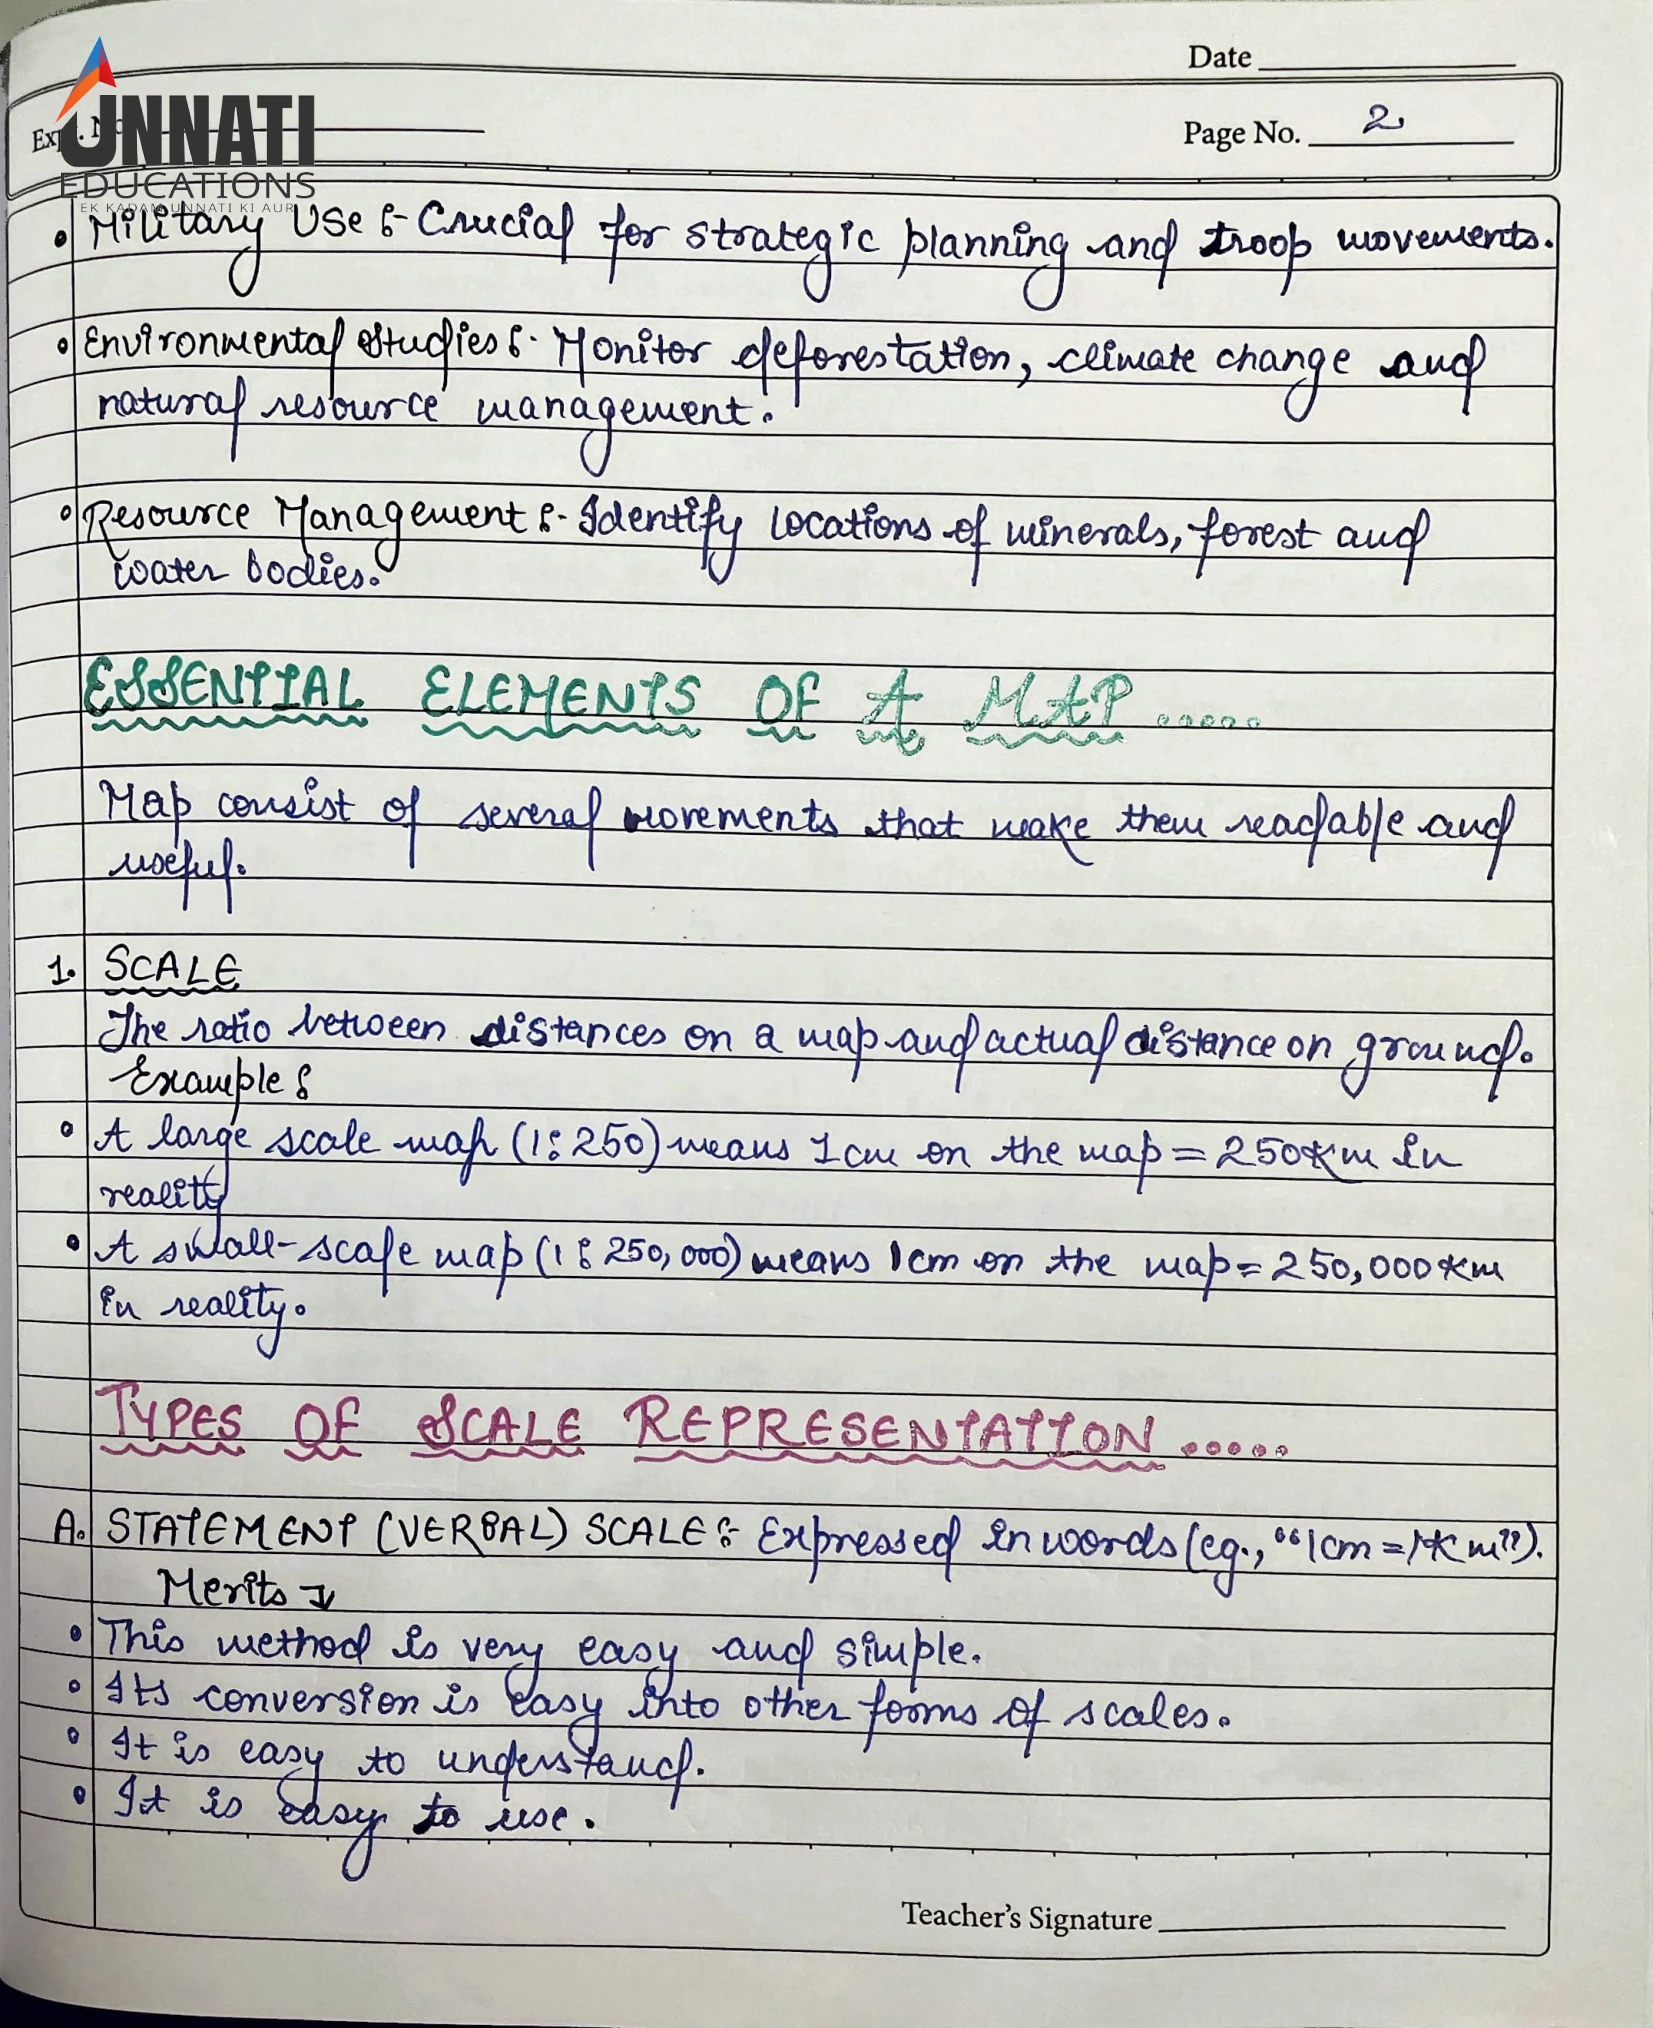 Date
UNNATI
EDUCATIONS
EK KADAM UNNATI KI AUR
Page No. 2
• Military Use :- Crucial for strategic planning and troop movements.
• Environmental Studies :- Monitor deforestation, climate change and
natural resource management.
• Resource Management :- Identify locations of minerals, forest and
water bodies.
ESSENTIAL ELEMENTS OF A MAP .....
Map consist of several movements that make them readable and
useful.
1. SCALE
The ratio between distances on a map and actual distance on ground.
Example :
• A large scale map (1:250) means 1cm on the map = 250Km in
reality
• A small-scale map (1:250,000) means 1cm on the map = 250,000 Km
in reality.
TYPES OF SCALE REPRESENTATION .....
A. STATEMENT (VERBAL) SCALE :- Expressed in words (eg., "1cm = 1Km").
Merits ↓
• This method is very easy and simple.
• Its conversion is easy into other forms of scales.
• It is easy to understand.
• It is easy to use.
Teacher's Signature